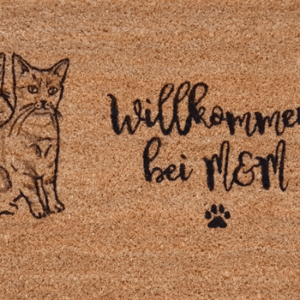 Willkommen
bei M&M